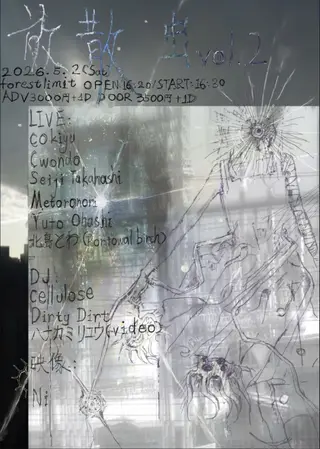 散 vol.2
2026.5.2(Sat)
forestlimit OPEN 16:20/START:16:30
ADV3000円+1D DOOR 3500円+1D
LIVE:
cokiyu
Cwondo
Seiji Takahashi
Metoronori
Yuto Ohashi
DJ:
Cellulose
Dirty Dirt
ハナカミリュウ(video)
映像:
Ni